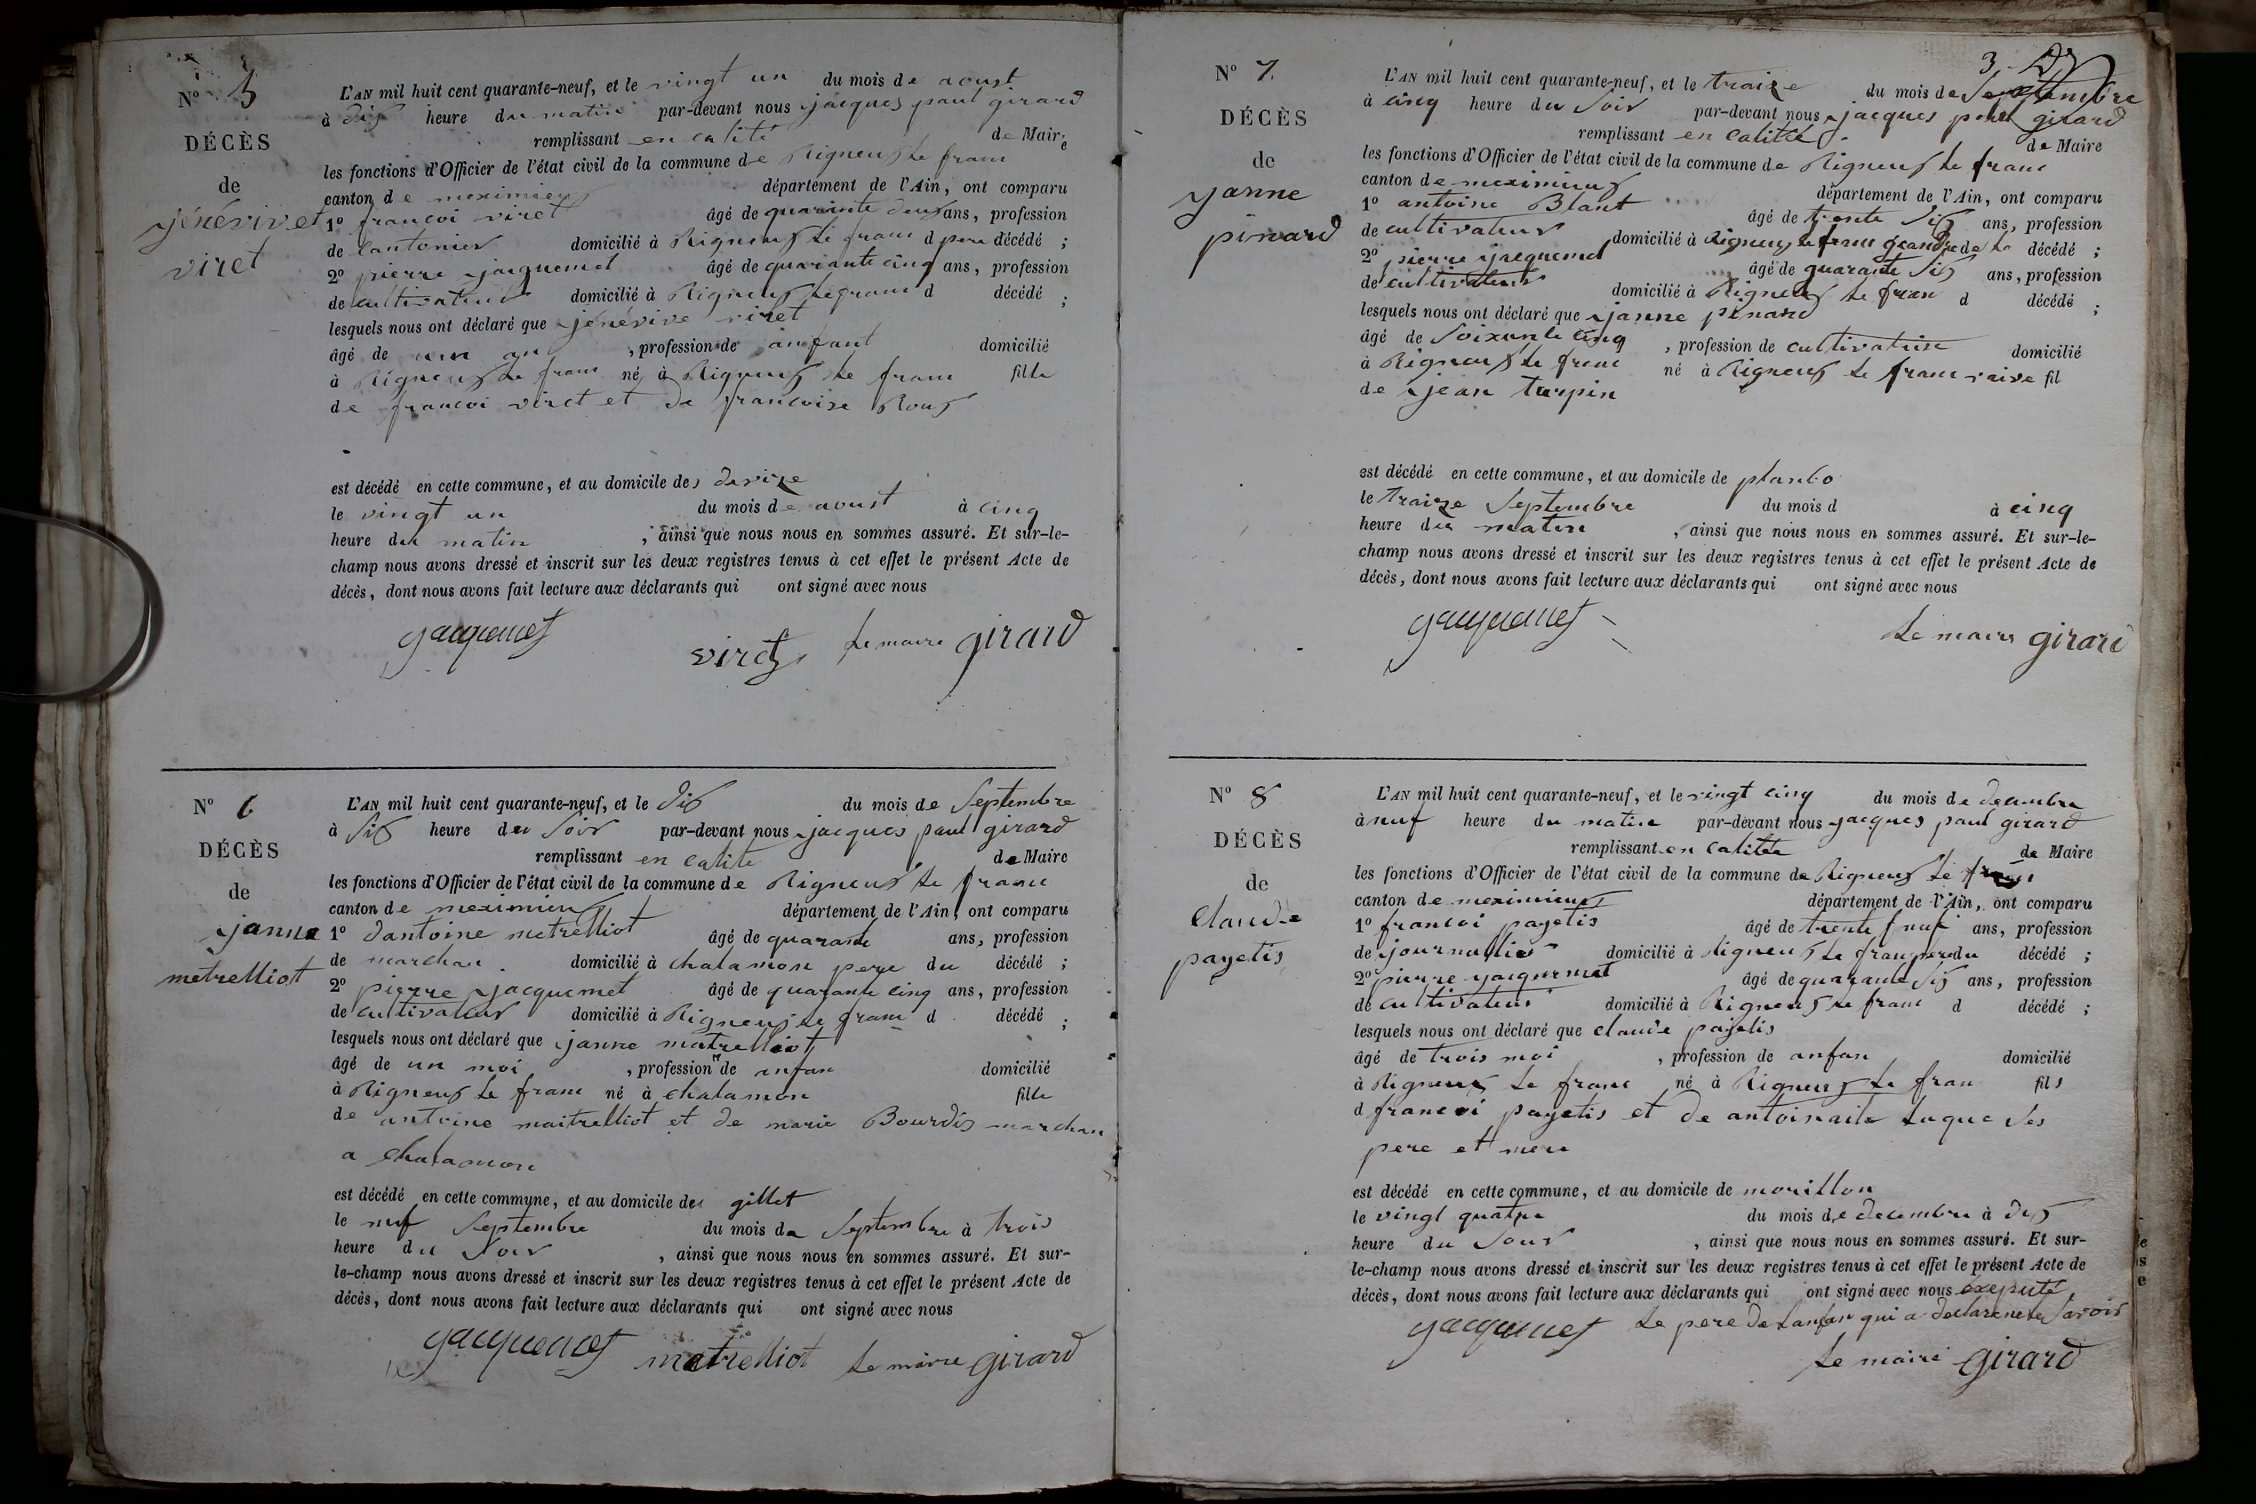 Nº 5
DÉCÈS
de
jénévive
viret
L'AN mil huit cent quarante-neuf, et le vingt un du mois de aoust
à dix heure du matin par-devant nous jacques paul girard
remplissant en calité de Maire
les fonctions d'Officier de l'état civil de la commune de Rigneux le franc
canton de meximieux département de l'Ain, ont comparu
1º francoi viret âgé de quarante deux ans, profession
de cantonier domicilié à Rigneux le franc d pere décédé ;
2º pierre jacquemet âgé de quarante cinq ans, profession
de cultivateur domicilié à Rigneux le franc d décédé ;
lesquels nous ont déclaré que jénévive viret
âgé de un an , profession de anfant domicilié
à Rigneux le franc né à Rigneux le franc fille
de francoi viret et de francoise Roux
est décédé en cette commune, et au domicile des
le vingt un du mois de aoust à cinq
heure du matin , ainsi que nous nous en sommes assuré. Et sur-le-
champ nous avons dressé et inscrit sur les deux registres tenus à cet effet le présent Acte de
décès, dont nous avons fait lecture aux déclarants qui ont signé avec nous
jacquemet viret le maire girard
Nº 6
DÉCÈS
de
janne
metrelliot
L'AN mil huit cent quarante-neuf, et le dix du mois de Septembre
à Six heure du Soir par-devant nous jacques paul girard
remplissant en calite de Maire
les fonctions d'Officier de l'état civil de la commune de Rigneux le franc
canton de meximieux département de l'Ain, ont comparu
1º dantoine metrelliot âgé de quarante ans, profession
de marchan domicilié à chalamon pere du décédé ;
2º pierre jacquemet âgé de quarante cinq ans, profession
de cultivateur domicilié à Rigneux le franc d décédé ;
lesquels nous ont déclaré que janne matrelliot
âgé de un moi , profession de anfan domicilié
à Rigneux le franc né à chalamon fille
de antoine maitrelliot et de marie Bourdis marchan
a chalamon
est décédé en cette commune, et au domicile de gillet
le nuf Septembre du mois de Septembre à trois
heure du Soir , ainsi que nous nous en sommes assuré. Et sur-
le-champ nous avons dressé et inscrit sur les deux registres tenus à cet effet le présent Acte de
décès, dont nous avons fait lecture aux déclarants qui ont signé avec nous
jacquemet metrelliot le maire girard
3
Nº 7
DÉCÈS
de
janne
pinard
L'AN mil huit cent quarante-neuf, et le traize du mois de Septembre
à cinq heure du Soir par-devant nous jacques paul girard
remplissant en calité de Maire
les fonctions d'Officier de l'état civil de la commune de Rigneux le franc
canton de meximieux département de l'Ain, ont comparu
1º antoine Blant âgé de trente Six ans, profession
de cultivateur domicilié à Rigneux le franc geandre de la décédé ;
2º pierre jacquemet âgé de quarante Six ans, profession
de cultivateur domicilié à Rigneux le fran d décédé ;
lesquels nous ont déclaré que janne pinard
âgé de Soixante cinq , profession de cultivatrise domicilié
à Rigneux le franc né à Rigneux le franc vaive fil
de jean turpin
est décédé en cette commune, et au domicile de planbo
le traize Septembre du mois d à cinq
heure du matin , ainsi que nous nous en sommes assuré. Et sur-le-
champ nous avons dressé et inscrit sur les deux registres tenus à cet effet le présent Acte de
décès, dont nous avons fait lecture aux déclarants qui ont signé avec nous
jacquemet le maire girard
Nº 8
DÉCÈS
de
Claude
payetis
L'AN mil huit cent quarante-neuf, et le vingt cinq du mois de decembre
à nuf heure du matin par-devant nous jacques paul girard
remplissant en calitée de Maire
les fonctions d'Officier de l'état civil de la commune de Rigneux le fran
canton de meximieux département de l'Ain, ont comparu
1º francoi payetis âgé de trente nuf ans, profession
de journallier domicilié à Rigneux le fran pere du décédé ;
2º pierre jacquemet âgé de quarante Six ans, profession
de cultivateur domicilié à Rigneux le franc d décédé ;
lesquels nous ont déclaré que claude payetis
âgé de trois moi , profession de anfan domicilié
à Rigneux le franc né à Rigneux le fran fils
d francoi payetis et de antoinaite luque Ses
pere et mere
est décédé en cette commune, et au domicile de morillon
le vingt quatre du mois de decembre à dix
heure du Soir , ainsi que nous nous en sommes assuré. Et sur-
le-champ nous avons dressé et inscrit sur les deux registres tenus à cet effet le présent Acte de
décès, dont nous avons fait lecture aux déclarants qui ont signé avec nous exeputé
jacquemet le pere de lanfan qui a declare ne le Savoir
le maire girard